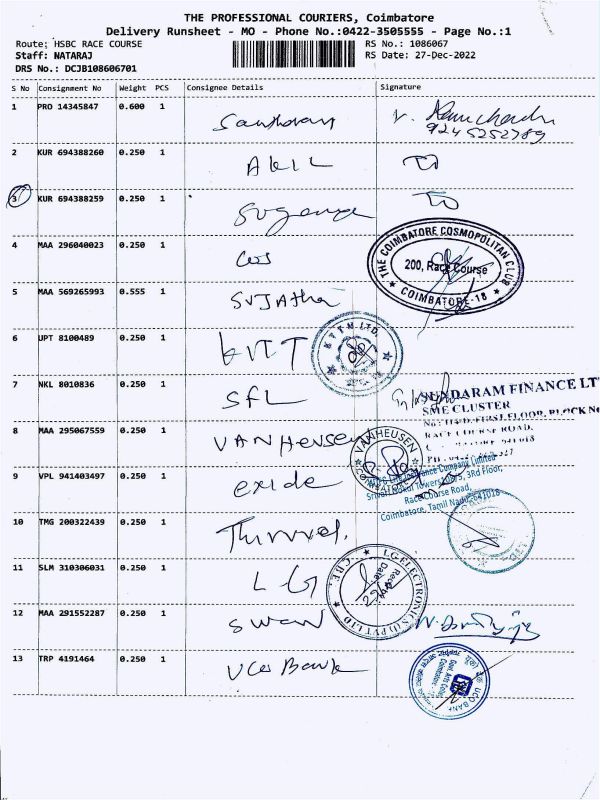 THE PROFESSIONAL COURIERS, Coimbatore
Delivery Runsheet - MO - Phone No.:0422-3505555 - Page No.:1
Route: HSBC RACE COURSE
RS No.: 1086067
Staff: NATARAJ
RS Date: 27-Dec-2022
DRS No.: DCJB108606701
S No Consignment No Weight PCS Consignee Details Signature
1 PRO 14345847 0.600 1 Santhoram
9245252789
2 KUR 694388260 0.250 1 AKIL
3 KUR 694388259 0.250 1 Suganya
4 MAA 296040023 0.250 1
THE COIMBATORE COSMOPOLITAN CLUB
200, Race Course
COIMBATORE-18
5 MAA 569265993 0.555 1 SUJAtha
6 UPT 8100489 0.250 1 KVTT
7 NKL 8010836 0.250 1 SFL
SUNDARAM FINANCE LT
SME CLUSTER
FIRST FLOOR, BLOCK No
RACE COURSE ROAD,
8 MAA 295067559 0.250 1 VANHeusen
VANHEUSEN
9 VPL 941403497 0.250 1 exide
Insurance Company Limited
3rd Floor,
Race Course Road,
Coimbatore, Tamil Nadu-641018
10 TMG 200322439 0.250 1
11 SLM 310306031 0.250 1 LG
LG ELECTRONICS (I) PVT LTD
CBE
12 MAA 291552287 0.250 1 Swan
13 TRP 4191464 0.250 1 UCO Bank
UCO BANK